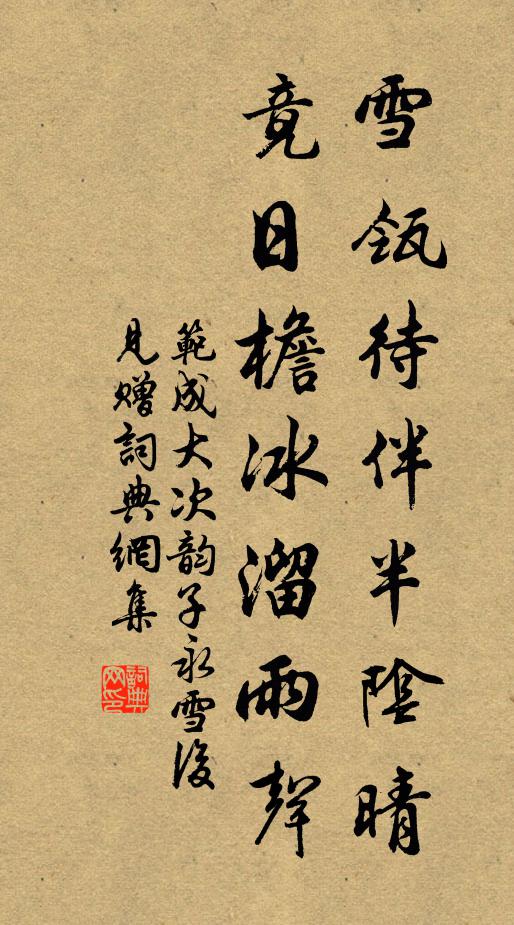 雪瓴待伴半陰晴
竟日檐冰溜雨聲
範成大次韵子永雪後
見贈詞典網集
詞典网印